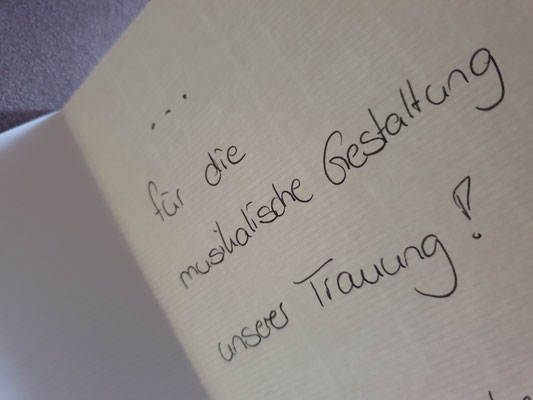 ...
für die
musikalische Gestaltung
unserer Trauung!